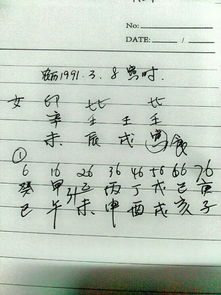 No:
DATE: / /
历1991.3.8寅时.
女 印 比 比
辛 壬 壬 壬
未 辰 戌 寅 食
①
6 16 26 36 46 56 66 76
癸 甲 乙 丙 丁 戊 己 庚
巳 午 未 申 酉 戌 亥 子